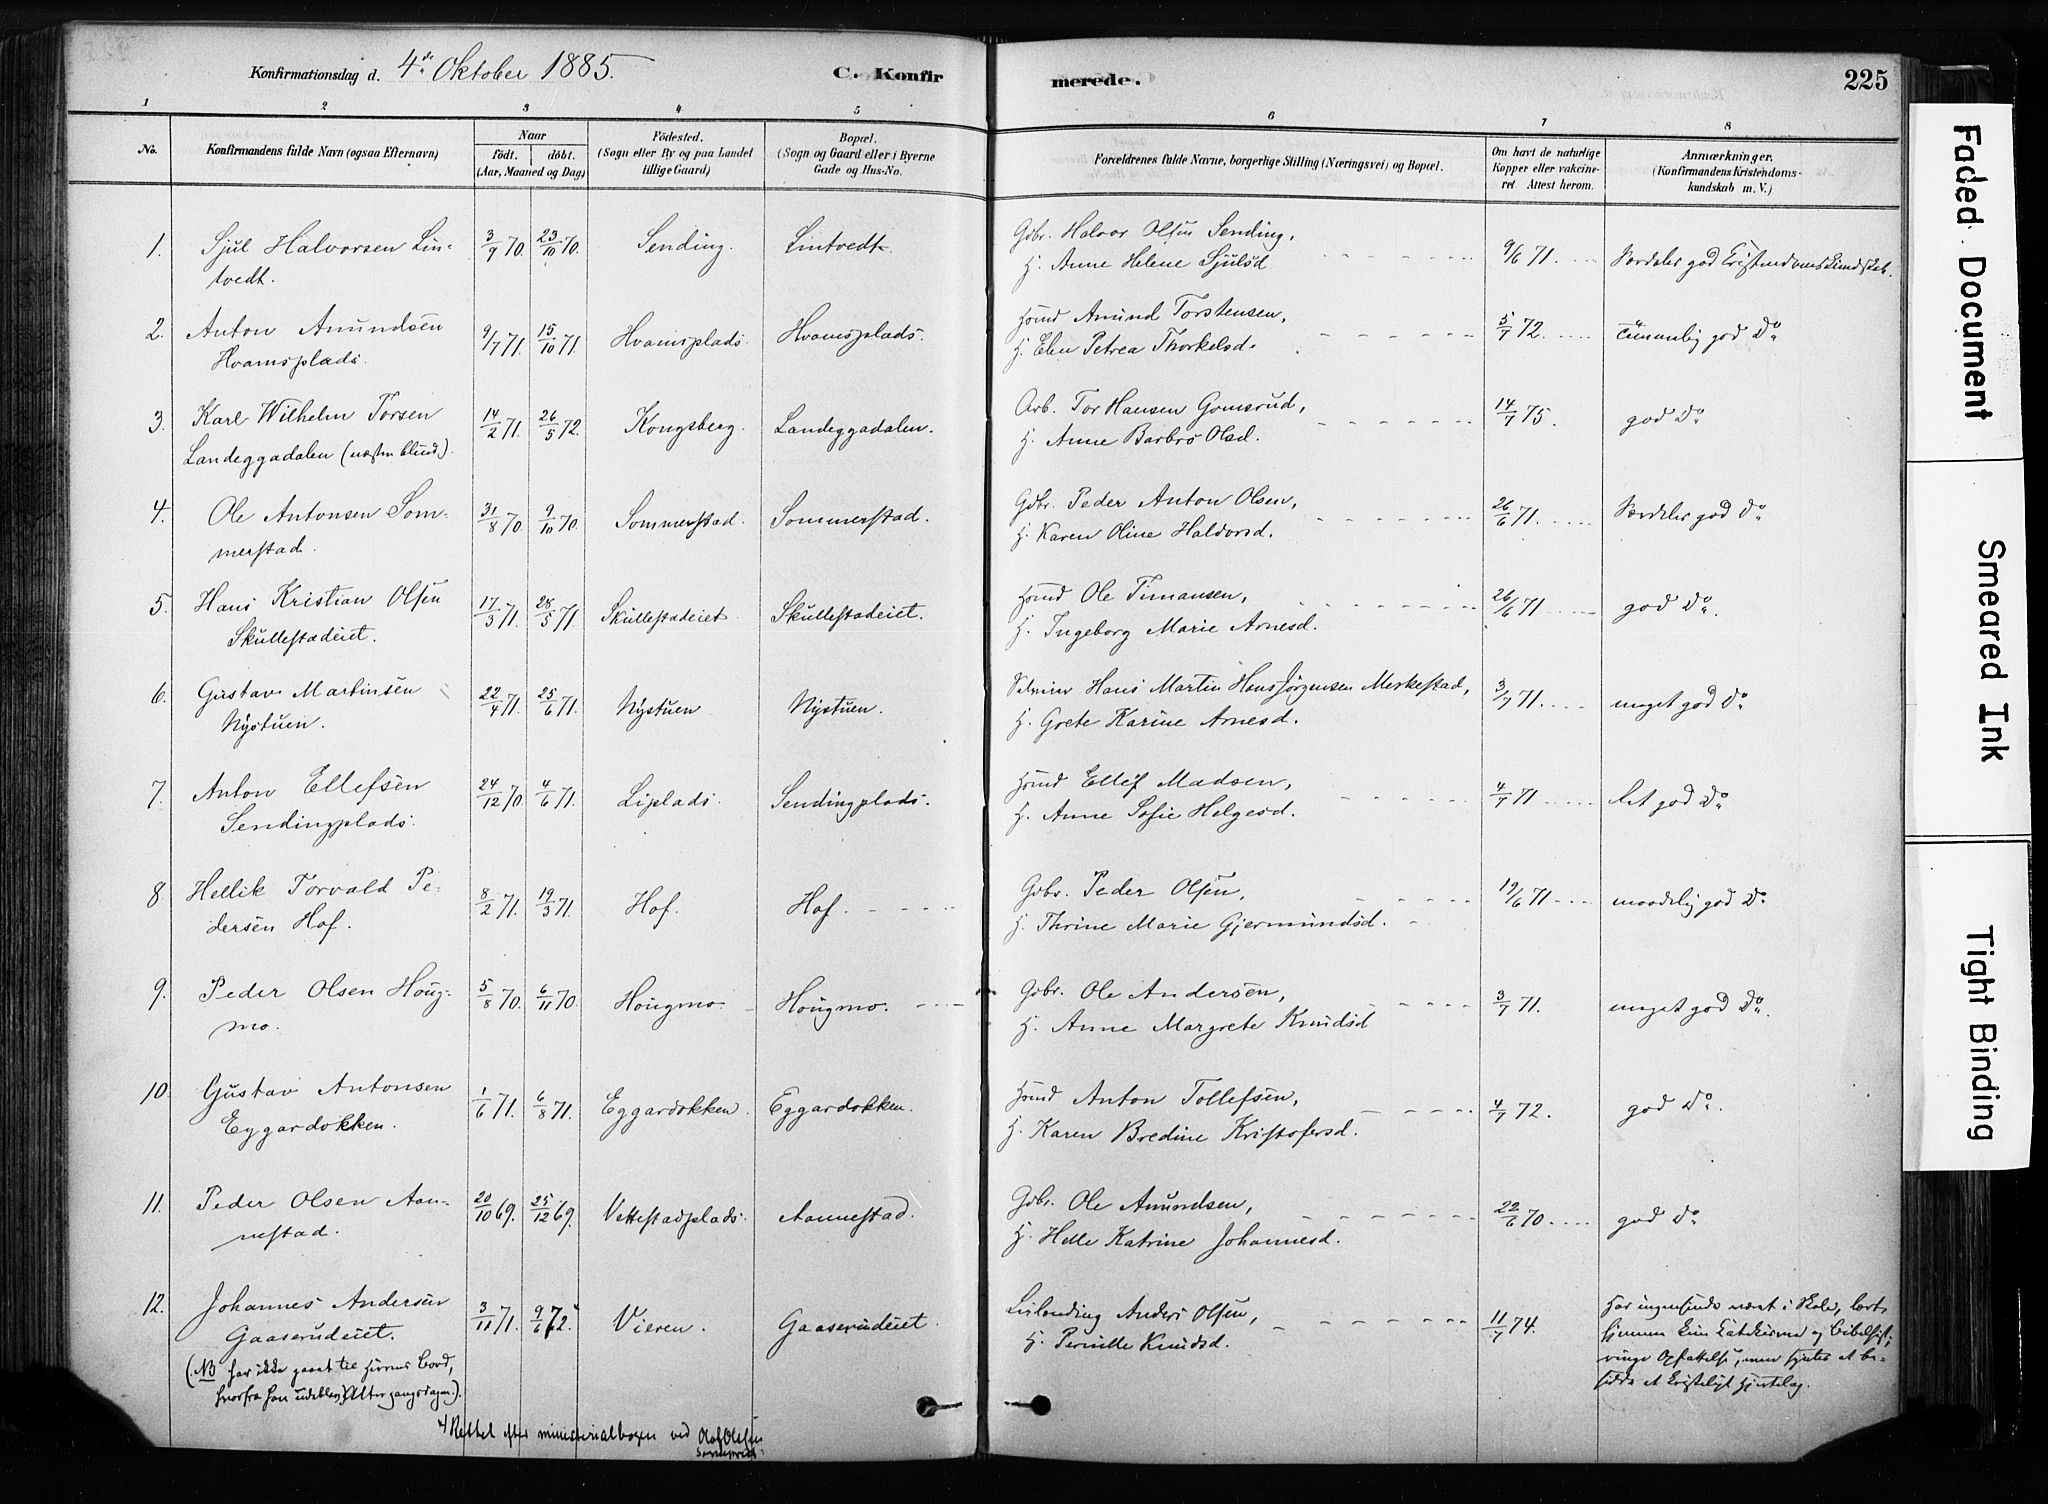 Konfirmationsdag d. 4de Oktober 1885.
C. Konfir
merede.
225
1 2 3 4 5 6 7 8
No.
Konfirmandens fulde Navn (ogsaa Efternavn)
Naar
födt. döbt.
(Aar, Maaned og Dag)
Födested.
(Sogn eller By og paa Landet
tillige Gaard)
Bopæl.
(Sogn og Gaard eller i Byerne
Gade og Hus-No.
Forældrenes fulde Navne, borgerlige Stilling (Næringsvei) og Bopæl.
Om havt de naturlige
Kopper eller vakcine-
ret Attest herom.
Anmærkninger.
(Konfirmandens Kristendoms-
kundskab m. V.)
1. Sjul Halvorsen Lin-
tvedt.
3/9 70. 23/10 70. Sending. Lintvedt
Gbr. Halvor Olsen Sending,
H. Anne Helene Sjulsd
9/6 71. Særdeles god Kristendomskundskab.
2. Anton Amundsen
Hvamsplads.
9/7 71. 15/10 71. Hvamsplads. Hvamsplads.
Hsmd Amund Torstensen,
H. Elen Petrea Thorkelsd.
5/7 72. temmelig god Do
3. Karl Wilhelm Torsen
Landeggadalen (næsten blind).
14/2 71. 26/5 72. Kongsberg. Landeggadalen.
Arb. Tor Hansen Gomsrud,
H. Anne Barbro Olsd.
14/7 75. god Do
4. Ole Antonsen Som-
merstad.
31/8 70 9/10 70. Sommerstad. Sommerstad.
Gbr. Peder Anton Olsen,
H. Karen Oline Haldorsd.
26/6 71. Særdeles god Do
5. Hans Kristian Olsen
Skullestadeiet.
17/3 71. 28/5 71 Skullestadeiet. Skullestadeiet.
Hsmd Ole Timansen,
H. Ingeborg Marie Arnesd.
26/6 71. god Do.
6. Gustav Martinsen
Nystuen.
22/4 71. 25/6 71. Nystuen Nystuen.
Hans Martin Hans Jörgensen Merkestad,
H. Grete Karine Arnesd.
3/7 71. meget god Do
7. Anton Ellefsen
Sendingplads.
24/12 70. 4/6 71. Liplads. Sendingplads.
Hsmd Ellef Madsen,
H. Anne Sofie Helgesd.
4/7 71. god Do
8. Hellik Torvald Pe-
dersen Hof.
8/2 71. 19/3 71. Hof. Hof.
Gbr. Peder Olsen,
H. Thrine Marie Gjermundsd.
19/6 71. maadelig god Do
9. Peder Olsen Houg-
mo.
5/8 70. 6/11 70. Hougmo. Hougmo.
Gbr. Ole Andersen,
H. Anne Margrete Knudsd
3/7 71. meget god Do.
10. Gustav Antonsen
Eggardokken.
1/6 71. 6/8 71. Eggardokken. Eggardokken.
Hsmd Anton Tollefsen,
H. Karen Bredine Kristofersd.
4/7 72. god Do.
11. Peder Olsen Aan-
nestad.
20/10 69. 25/12 69. Vettestadplads. Aannestad.
Gbr. Ole Amundsen,
H. Helle Katrine Johannesd.
22/6 70. god Do
12. Johannes Andersen
Gaaserudeiet.
3/11 71. 9/6 72. Vieren. Gaaserudeiet.
Leilending Anders Olsen,
H. Pernille Knudsd.
11/7 74.
Har ingensinde været i Skole, lært
hjemme sin Katekisme og Bibelhist.;
ringe Opfattelse, men synes at be-
sidde et kristeligt Hjertelag.
(NB har ikke gaaet til Herrens Bord,
hvorfra han udeblev Altergangsdagen.).
4/ Rettet efter ministerialbogen ved Olaf Olafsen
Sogneprest
Faded Document
Smeared Ink
Tight Binding